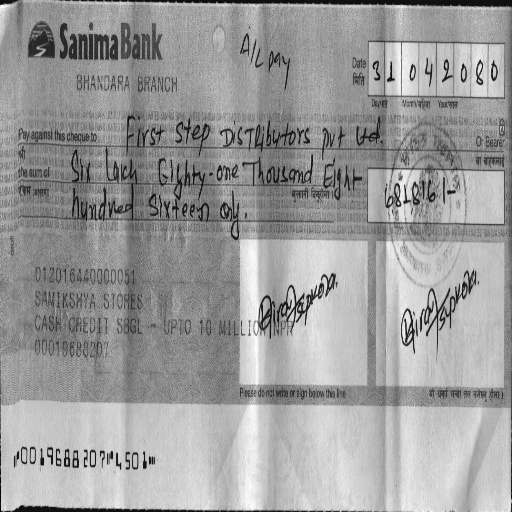 Sanima Bank
BHANDARA BRANCH
A/C Pay
Date
मिति
31 04 2080
Day/गते Month/महिना Year/साल
Pay against this cheque to First Step Distributors Pvt Ltd.
Or Bearer
श्री
वा बाहकलाई
the sum of Six Lakh Eighty-one Thousand Eight
681816/-
hundred Sixteen only.
012016440000051
SAMIKSHYA STORES
CASH CREDIT SBGL - UPTO 10 MILLION NPR
0001968820?
Please do not write or sign below this line
⑈0019688207⑈4501⑈